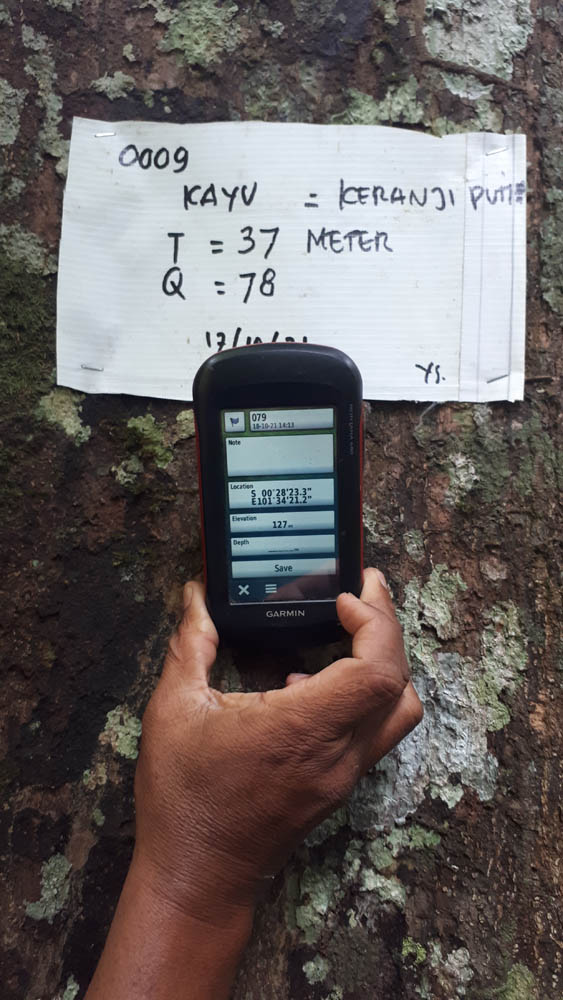 0009
KAYU = KERANJI PUTIH
T = 37 METER
Q = 78
17/10/21
YS.
079
18-10-21 14:13
Note
Location
S 00°28'23.3"
E101°34'21.2"
Elevation
127 m
Depth
Save
GARMIN